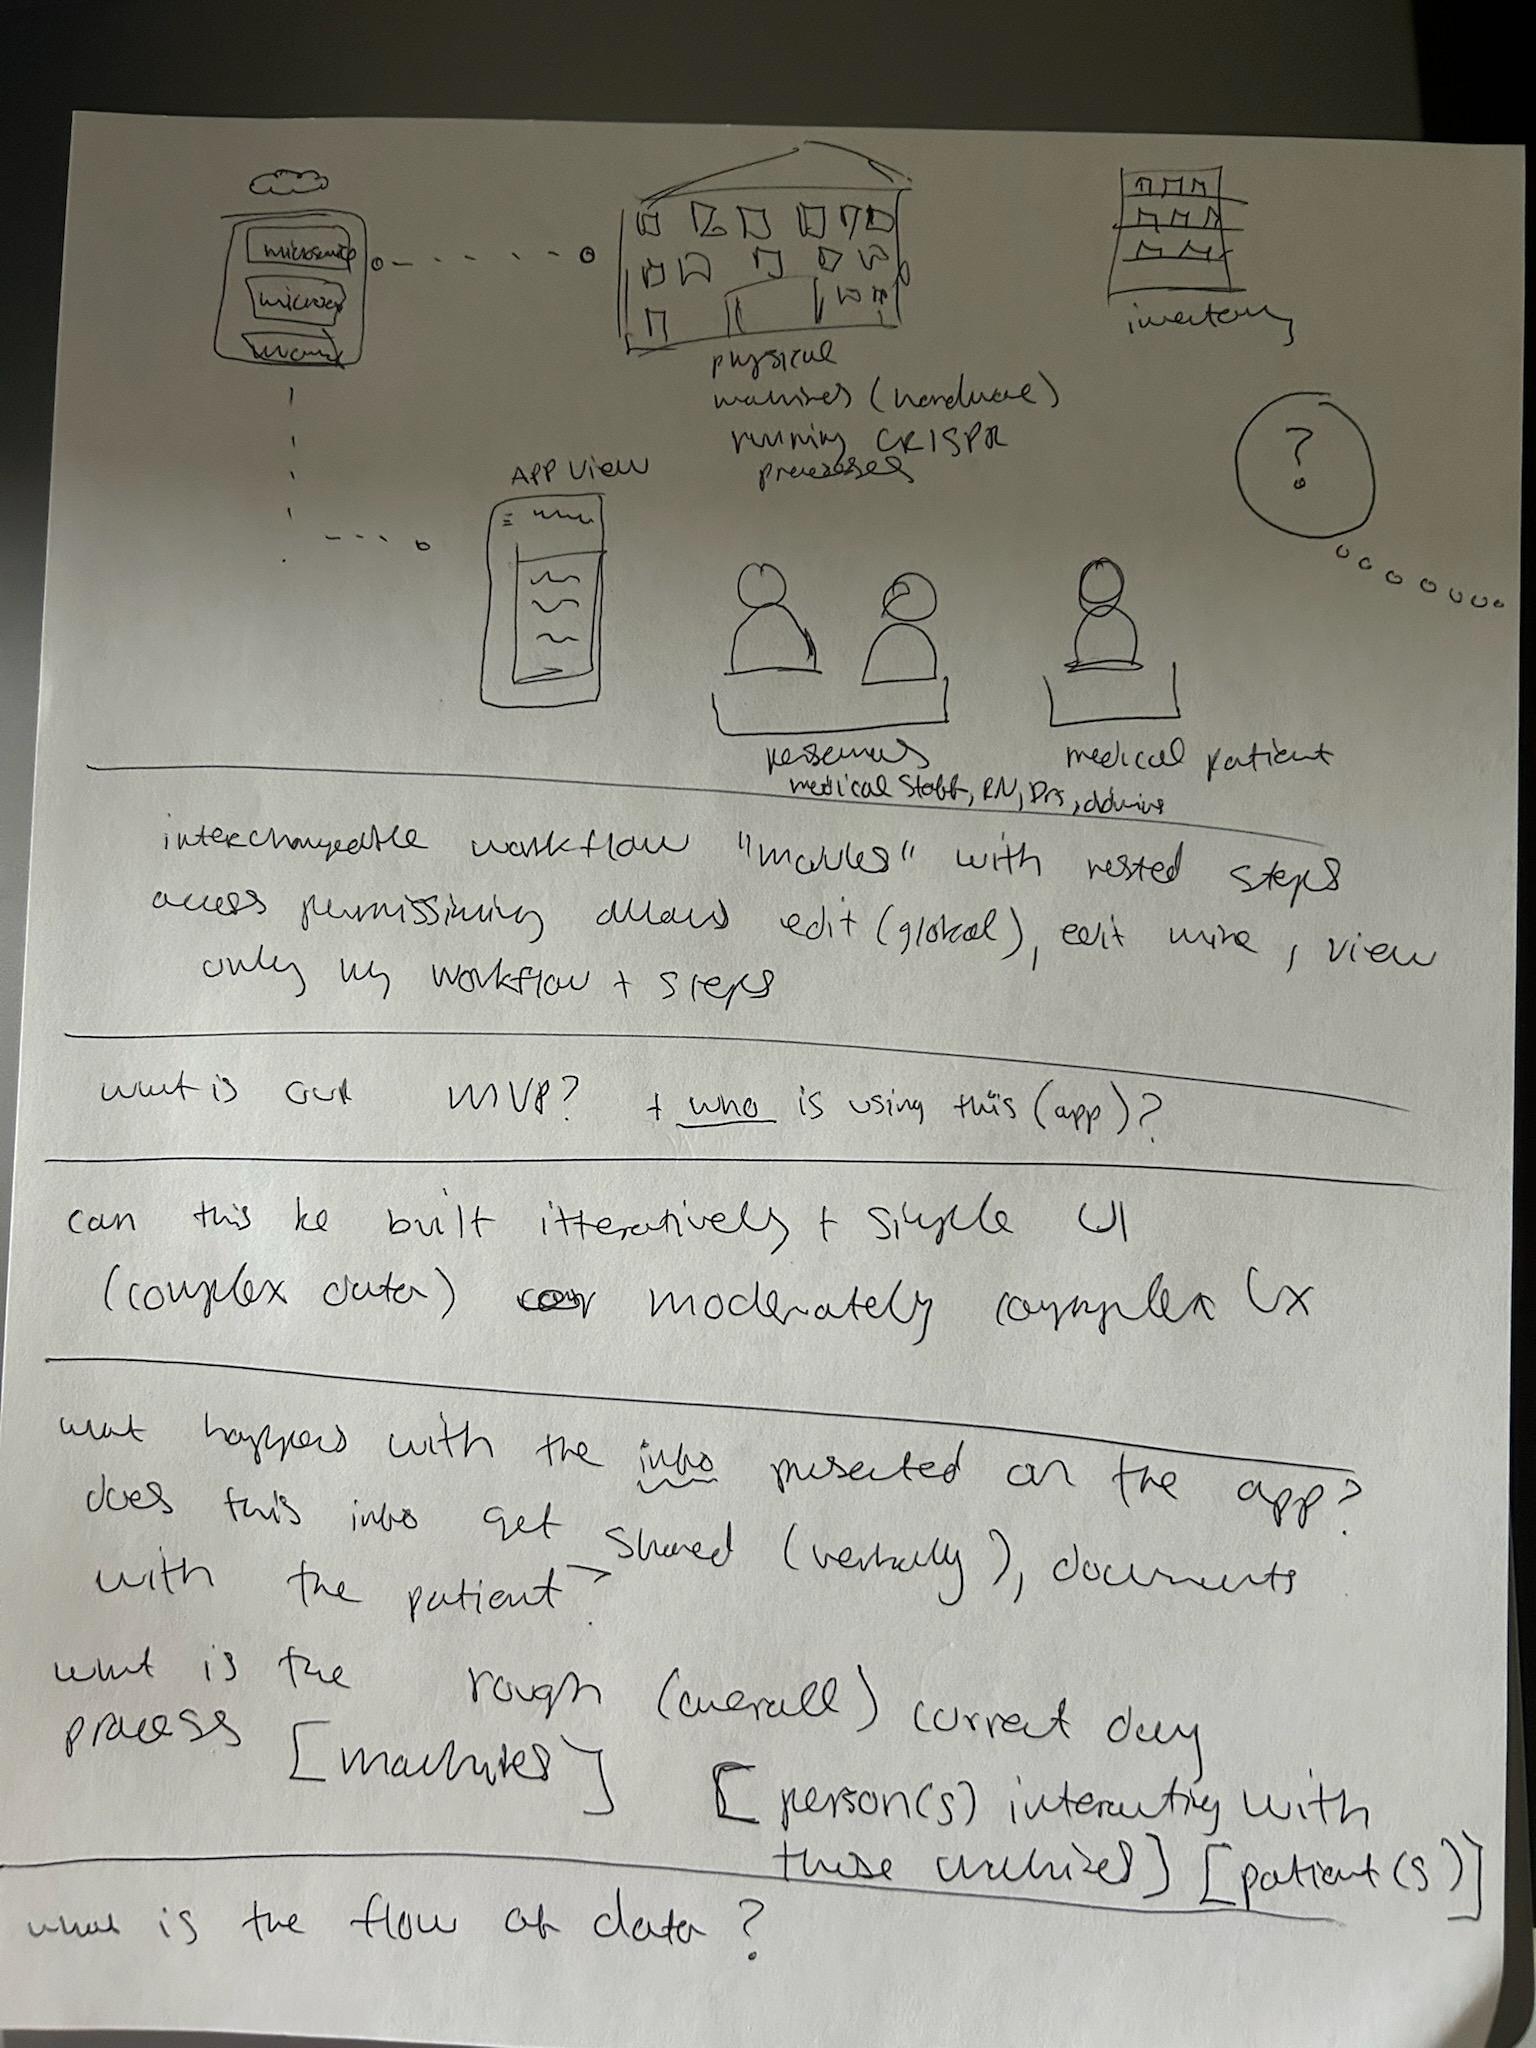 microservice
micro
inventory
physical
machines (hardware)
running CRISPR
processes
?
APP VIEW
medical patient
medical staff, RN, Drs, admins
interchangeable workflow "modules" with nested steps
access permissioning allows edit (global), edit mine, view
only my workflow + steps
what is our MVP? + who is using this (app)?
can this be built itteratively + simple UI
(complex data) moderately complex Ux
what happens with the info presented on the app?
does this info get shared (verbally), documents
with the patient?
what is the rough (overall) current day
process [machines] [person(s) interacting with
these machines] [patient(s)]
what is the flow of data?